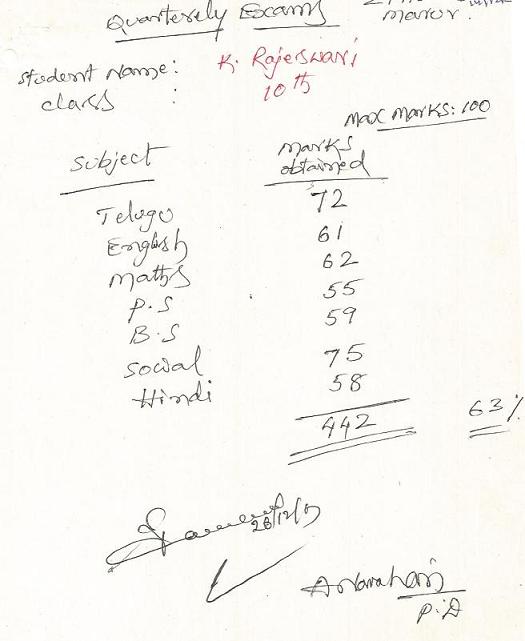 Quarterely Exams
Manor.
Student Name: K. Rajeswari
class : 10th
Max Marks: 100
Subject Marks obtained
Telugu 72
English 61
Maths 62
P.S 55
B.S 59
Social 75
Hindi 58
442 63%
P.D